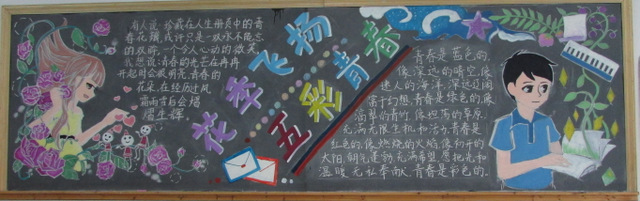 有人说:珍藏在人生册页中的青
春花瓣,或许只是一双永不倦忘
的双眸,一个令人心动的微笑。
我想说:青春的光芒在冉冉
升起时会最明亮,青春的
花朵,在经历过风
霜雨雪后会增
增生辉。
飞扬青春
五彩花季
青春是蓝色的。
像深远的晴空,像
迷人的海洋,深远辽阔
富于幻想。青春是绿色的。像
滴翠的青竹,像坦荡的草原,
充满无限生机和活力。青春是
红色的。像燃烧的火焰,像初升的
太阳,朝气蓬勃,充满希望,愿把光和
温暖无私奉献。青春是彩色的。